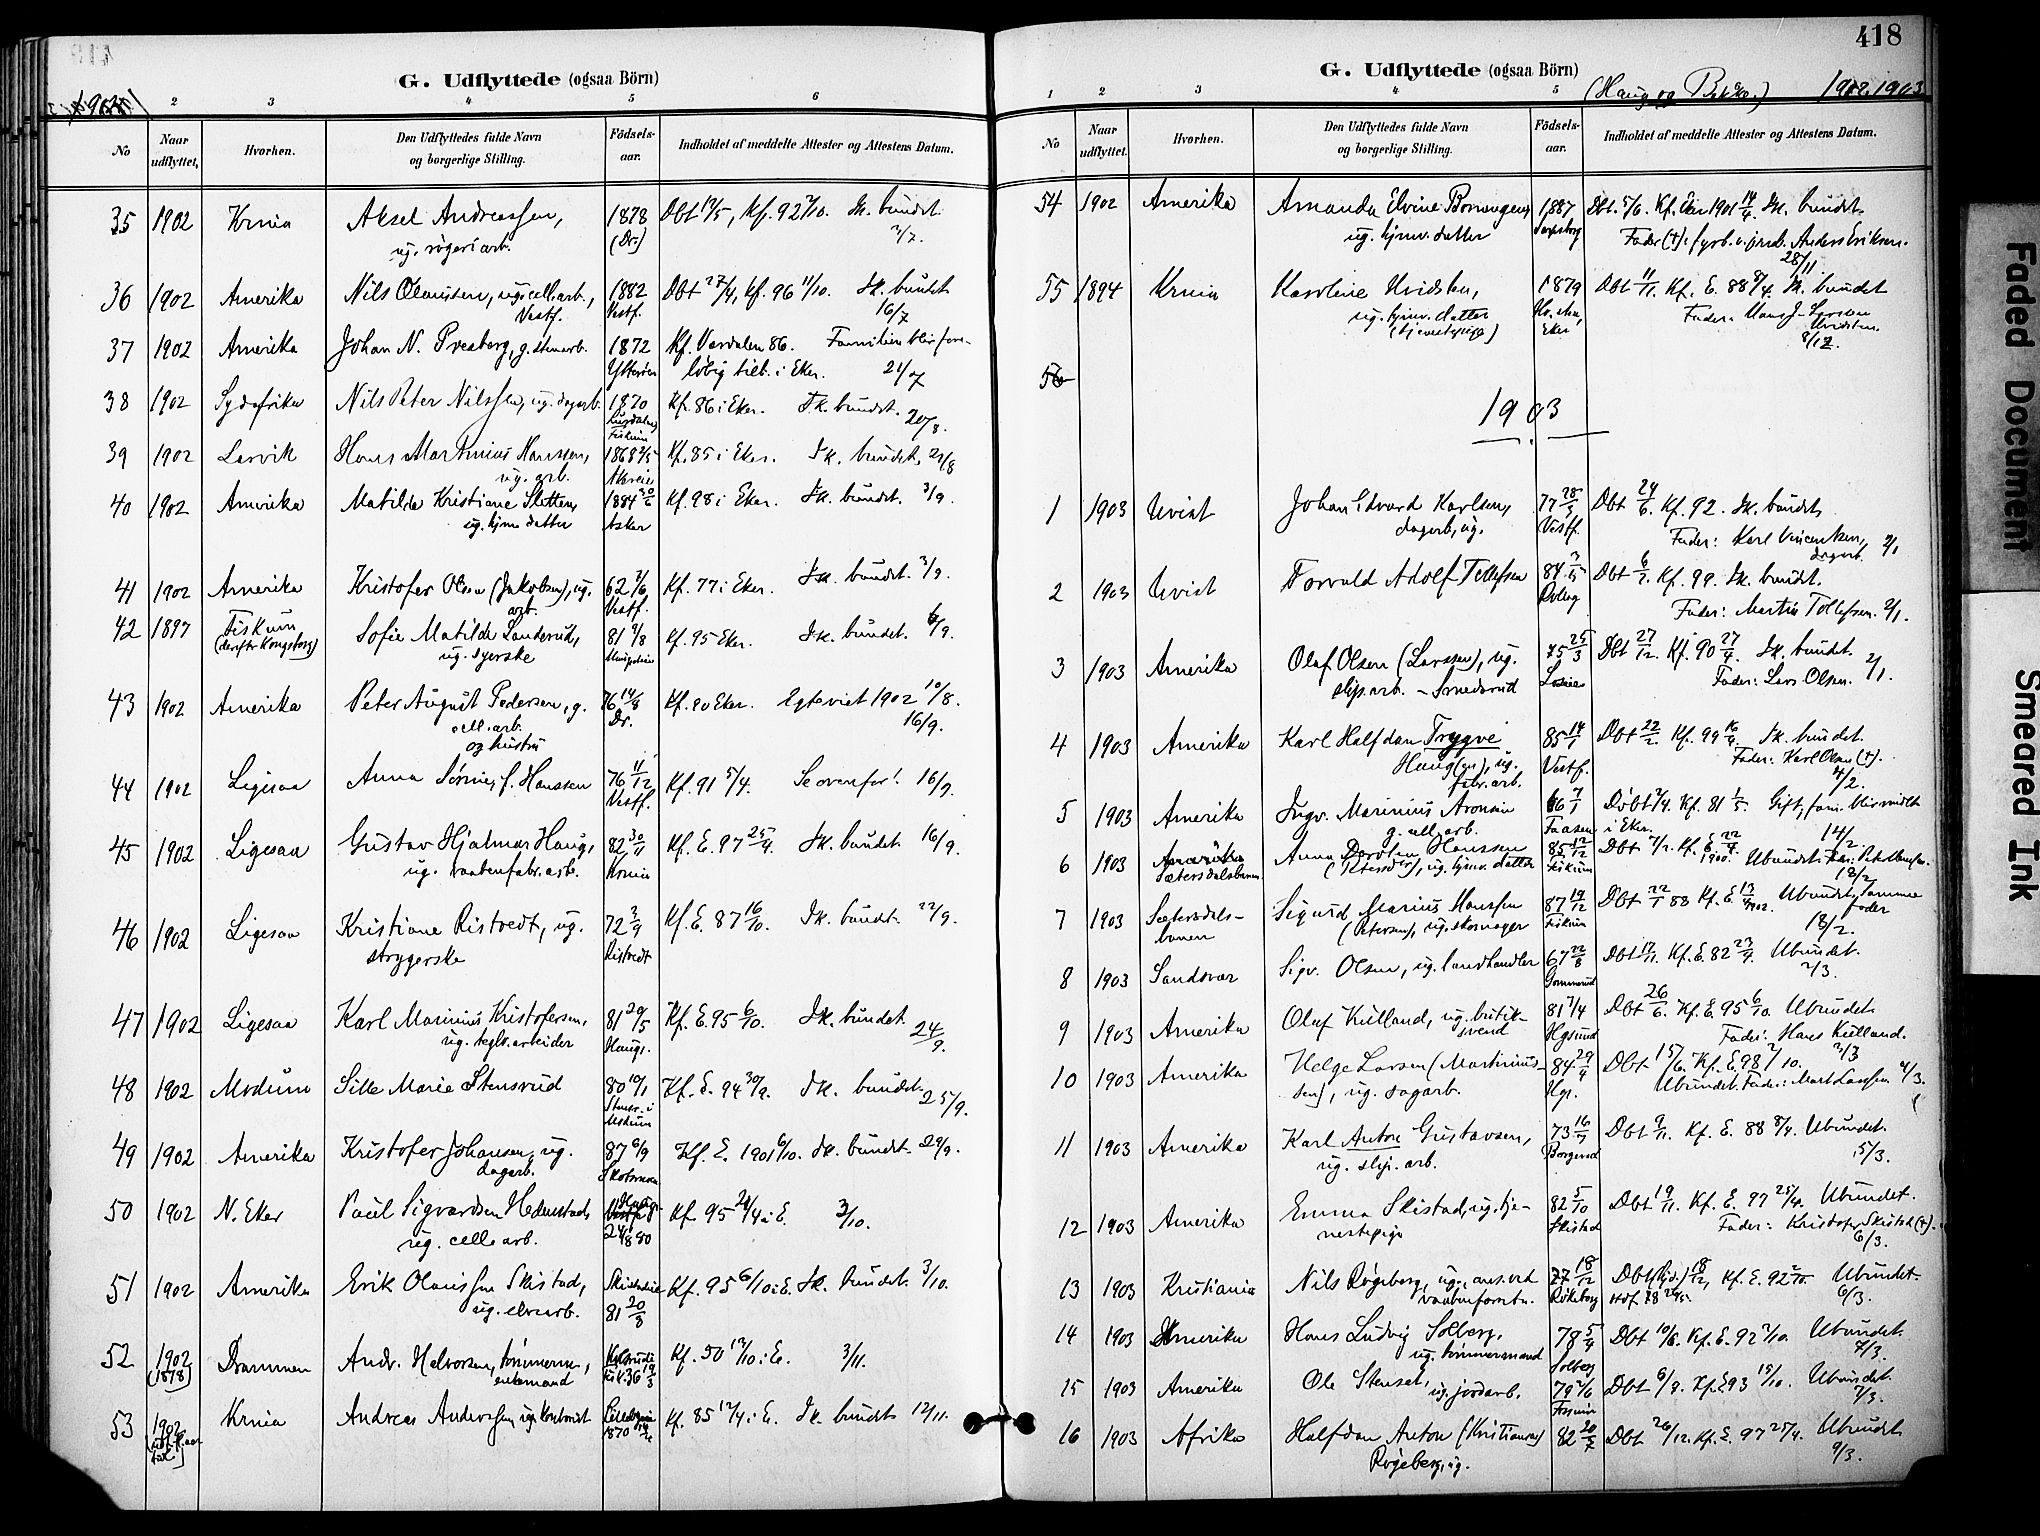 G. Udflyttede (ogsaa Börn)
2 3 4 5 6
No
Naar udflyttet.
Hvorhen.
Den Udflyttedes fulde Navn og borgerlige Stilling.
Födsels-aar.
Indholdet af meddelte Attester og Attestens Datum.
35 1902 Krnia Aksel Andreassen, 1878 Dbt 13/5, Kf. 92 2/10. Ik. bundet
ug. arb. (Dr.) 2/7.
36 1902 Amerika Nils Olavesen, ug. cell. arb., 1882 Dbt 27/4, Kf. 96 11/10. Ik. bundet
Vestf. Vestf. 16/7
37 1902 Amerika Johan N. Presberg, g. stenarb. 1872 Kf. Værdalen 86. Familien blir fore-
Ytterøen løbig tilb. i Eker. 21/7
38 1902 Sydafrika Nils Peter Nilssen, ug. dagarb. 1870 Kf. 86 i Eker. Ik. bundet. 20/8.
Fiskum
39 1902 Larvik Hans Martinius Hanssen, 1868 Kf. 85 i Eker. Ik. bundet. 21/8
ug. arb.
40 1902 Amerika Matilde Kristiane Sletten, 1884 Kf. 98 i Eker. Ik. bundet. 3/9.
ug. hjmv. datter Asker
41 1902 Amerika Kristofer Olsen (Jakobsen), ug. 62 7/6 Kf. 77 i Eker. Ik. bundet. 3/9.
arb. Vestf.
42 1897 Fiskum Sofie Matilde Landerud, 81 9/8 Kf. 95 Eker. Ik. bundet. 6/9.
(derefter Kongsberg) ug. syerske
43 1902 Amerika Peter August Pedersen, g. 76 14/8 Kf. 90 Eker. Egteviet 1902 10/8.
cell. arb. Dr. 16/9.
og hustru
44 1902 Ligesaa Anna f. Hanssen 76 11/12 Kf. 91 5/4. Se ovenfor! 16/9.
Vestf.
45 1902 Ligesaa Gustav Hjalmar Haug, 82 30/11 Kf. E. 97 25/4 Ik. bundet. 16/9.
ug. vaabenfabr. arb. Krnia
46 1902 Ligesaa Kristiane Ristvedt, ug. 72 3/9 Kf. E. 87 16/10. Ik. bundet. 22/9.
strygerske Ristvedt
47 1902 Ligesaa Karl Marinius Kristofersen, 81 29/5 Kf. E. 95 6/10. Ik. bundet. 24/9.
ug. teglv. arbeider Haugs.
48 1902 Modum Sille Marie Stensrud 80 10/1 Kf. E. 94 30/9. Ik. bundet. 25/9.
Stensr. i Modum
49 1902 Amerika Kristofer Johansen, ug. 87 6/9 Kf. E. 1901 6/10. Ik. bundet. 29/9.
dagarb.
50 1902 N. Eker Paul Sigvardsen Hedenstad, Kf. 95 29/4 i E. 3/10.
ug. cell. arb. 24/8 80
51 1902 Amerika Erik Olaussen Skistad, Kf. 95 6/10 i E. Ik. bundet. 3/10.
ug. elvearb. 81 20/3
52 1902 Drammen Andr. Helvorsen, tømmerm., Kf. 50 13/10 i E. 3/11.
(1878) enkemand
53 1902 Krnia Andreas Anderssen ug. Kf. 85 12/4 i E. Ik. bundet 12/11.
1870
418
G. Udflyttede (ogsaa Börn)
(Haug og Bakke.) 1902, 1903
1 2 3 4 5
No
Naar udflyttet.
Hvorhen.
Den Udflyttedes fulde Navn og borgerlige Stilling.
Födsels-aar.
Indholdet af meddelte Attester og Attestens Datum.
54 1902 Amerika Amanda Elvine Borvengen, 1887 Dbt. 5/6. Kf. Eker 1901 14/4. Ik. bundet
ug. hjmv. datter Sarpsborg Fader (†): Anders Eriksen.
28/11
55 1894 Krnia Karoline Hvidsten, 1879 Dbt 11/11. Kf. E. 88 8/4. Ik. bundet
ug. hjmv. datter Fader: Hans J. Larssen
(tjenestepige) Eker Hvidsten.
8/12.
56
1903
1 1903 Uvist Johan Edvard Karlsen, 77 28/3 Dbt 24/6. Kf. 92. Ik. bundet.
dagarb., ug. Vestf. Fader: Karl Vincentsen, 2/1
dagarb.
2 1903 Uvist Torvald Adolf Tollefsen 84 3/5 Dbt 6/7. Kf. 99. Ik. bundet.
Fader: Martin Tollefsen. 2/1.
3 1903 Amerika Olaf Olsen (Larssen), ug. 75 25/3 Dbt 27/12. Kf. 90 27/4. Ik. bundet.
slip. arb. – Smedsrud Fader: Lars Olsen. 2/1.
4 1903 Amerika Karl Halfdan Trygve 85 14/1 Dbt 22/2. Kf. 99 16/4 Ik. bundet.
Haug(en), ug. Vestf. Fader: Karl Olsen (†).
fabr. arb. 4/2.
5 1903 Amerika Ingv. Marinius Aronsen 66 7/1 Döbt 2/4. Kf. 81 1/5. Gift, fam. blir midlt
g. cell. arb. i Eker. 14/2
6 1903 Amerika Anna Dorothea Hanssen 85 12/12 Dbt 7/2. Kf. E. 22/4 1900. Ubundet.
Sætersdalsbanen (Petersdtr), ug. hjmv. datter Fiskum 18/2
7 1903 Sætersdals- Sigurd Marius Hanssen 87 19/12 Dbt 22/1 88 Kf. E. 13/4 1902. Ubundet, samme
banen (Petersen), ug. skomager Fiskum fader
18/2.
8 1903 Sandsvær Sigv. Olsen, ug. landhandler 67 22/8 Dbt 17/11. Kf. E. 82 23/4. Ubundet.
Gommerud 2/3.
9 1903 Amerika Olaf Kulland, ug. butik- 81 7/4 Dbt 26/6. Kf. E. 95 6/10. Ubundet.
svend Hgsund Fader: Hans Kulland.
3/3
10 1903 Amerika Helge Larsen (Martinius- 84 29/4 Dbt 15/6. Kf. E. 98 2/10.
sen), ug. dagarb. Hgs. Ubundet. Fader: Mart. Larssen 4/3.
11 1903 Amerika Karl Anton Gustavsen, 73 16/7 Dbt 9/11. Kf. E. 88 8/4. Ubundet.
ug. slip. arb. Borgerud 5/3.
12 1903 Amerika Emma Skistad, ug. tje- 82 5/10 Dbt 19/11. Kf. E. 97 25/4. Ubundet.
nestepige Skistad Fader: Kristofer Skistad (†).
6/3.
13 1903 Kristiania Nils Røgeberg, ug., 77 18/12 Dbt 18/12, Kf. E. 92 2/10. Ubundet.
Røkeberg 6/3.
14 1903 Amerika Hans Ludvig Solberg, 78 5/4 Dbt 10/6. Kf. E. 92 2/10. Ubundet.
ug. tømmermand Solberg 7/3.
15 1903 Amerika Ole Stenset, 79 2/6 Dbt 6/9. Kf. E 93 15/10. Ubundet.
ug. jordarb. 7/3.
16 1903 Afrika Halfdan Anton (Kristiansen) 82 20/7 Dbt 26/12. Kf. E. 97 25/4. Ubundet
Røgeberg, ug. 9/3.
Faded Document
Smeared Ink